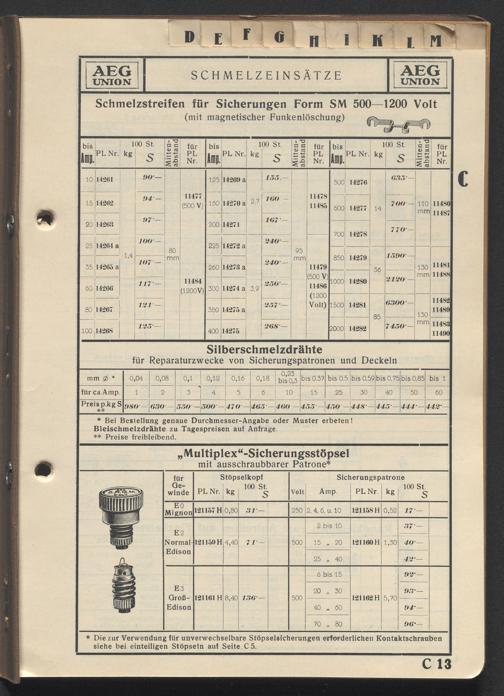 D E F G H I K L M
AEG
UNION
SCHMELZEINSÄTZE
AEG
UNION
Schmelzstreifen für Sicherungen Form SM 500—1200 Volt
(mit magnetischer Funkenlöschung)
bis Amp. PL Nr. kg 100 St. S Mitten-abstand für PL Nr. bis Amp. PL Nr. kg 100 St. S Mitten-abstand für PL Nr. bis Amp. PL Nr. kg 100 St. S Mitten-abstand für PL Nr.
10 14261 90·— 125 14269 a 155.— 500 14276 635·—
15 14262 94·— 11477 (500 V) 150 14270 a 2,7 160·— 11478 11485 600 14277 14 700·— 110 mm 11480 11487
20 14263 97·— 200 14271 167·— 700 14278 770·—
C
25 14264 a 1,4 100·— 80 mm 225 14272 a 240·— 95 mm 850 14279 56 1590·— 130 mm 11481 11488
35 14265 a 107·— 260 14273 a 240·— 11479 (500 V) 11486 (1200 Volt) 1000 14280 2120·—
60 14266 117·— 11484 (1200V) 300 14274 a 3,9 250·—
80 14267 121·— 350 14275 a 257·— 1500 14281 85 6300·— 130 mm 11482 11489
100 14268 125·— 400 14275 268·— 2000 14282 7450·— 11483 11490
Silberschmelzdrähte
für Reparaturzwecke von Sicherungspatronen und Deckeln
mm Ø * 0,04 0,08 0,1 0,12 0,16 0,18 0,25 bis 0,3 bis 0.37 bis 0.5 bis 0.59 bis 0.75 bis 0,85 bis 1
für ca. Amp. 1 2 3 4 5 6 10 15 25 30 40 50 60
Preis p. kg S ** 980·— 630·— 550·— 500·— 470·— 465·— 460·— 455·— 450·— 448·— 445·— 444·— 442·—
* Bei Bestellung genaue Durchmesser-Angabe oder Muster erbeten!
Bleischmelzdrähte zu Tagespreisen auf Anfrage.
** Preise freibleibend.
„Multiplex“-Sicherungsstöpsel
mit ausschraubbarer Patrone*
für Ge-winde Stöpselkopf Sicherungspatrone
PL Nr. kg 100 St. S Volt Amp. PL Nr. kg 100 St. S
E0 Mignon 121157 H 0,80 31·— 250 2, 4, 6, u. 10 121158 H 0,52 17·—
E2 Normal-Edison 121159 H 4,40 71·— 500 2 bis 10 121160 H 1,50 37·—
15 „ 20 40·—
25 „ 40 42·—
E3 Groß-Edison 121161 H 8,40 136·— 500 6 bis 15 121162 H 5,70 92·—
20 „ 30 93·—
40 „ 60 94·—
70 „ 80 96·—
* Die zur Verwendung für unverwechselbare Stöpselsicherungen erforderlichen Kontaktschrauben
siehe bei einteiligen Stöpseln auf Seite C 5.
C 13